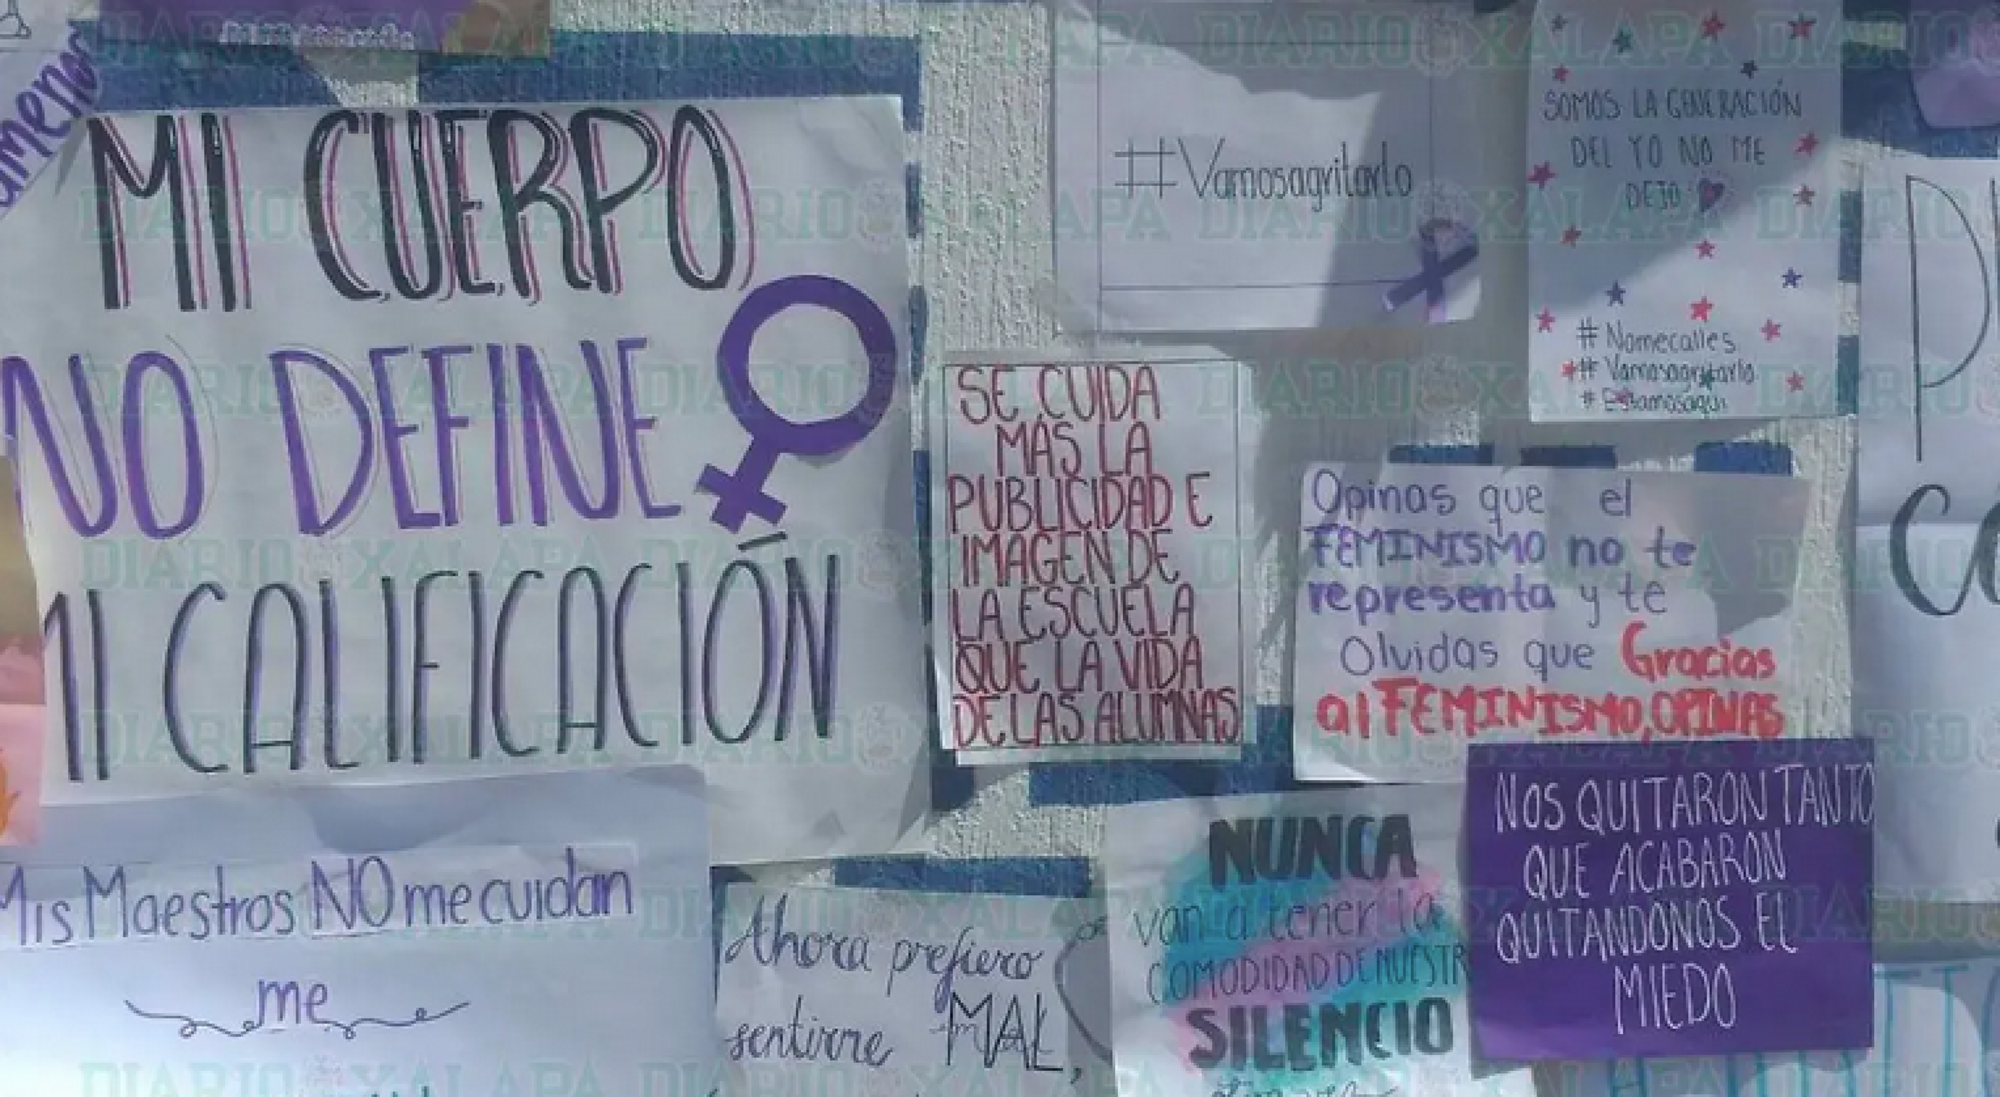 MI CUERPO
NO DEFINE
MI CALIFICACIÓN
#Vamosagritarlo
SOMOS LA GENERACIÓN
DEL YO NO ME
DEJO
#Nomecalles
#Vamosagritarlo
#Estamosaqui
SE CUIDA
MÁS LA
PUBLICIDAD E
IMAGEN DE
LA ESCUELA
QUE LA VIDA
DE LAS ALUMNAS
Opinas que el
FEMINISMO no te
representa y te
Olvidas que Gracias
al FEMINISMO, OPINAS
NOS QUITARON TANTO
QUE ACABARON
QUITANDONOS EL
MIEDO
Mis Maestros NO me cuidan
me
Ahora prefiero
sentirme MAL,
NUNCA
van a tener la
COMODIDAD DE NUESTR
SILENCIO
DIARIO XALAPA